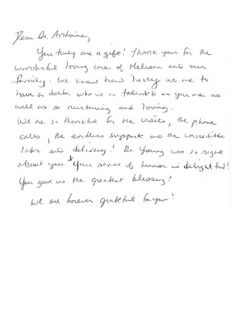 Dear Dr. Antoine,
You truly are a gift! Thank you for the
wonderful loving care of Melissa and our
family. We know how lucky we are to
have a doctor who is as talented as you are as
well as so nurturing and loving.
We are so thankful for the visits, the phone
calls, the endless support and the incredible
labor and delivery! Dr. Young was so right
about you & your sense of humor is delightful!
You gave us the greatest blessing!
We are forever grateful for you!